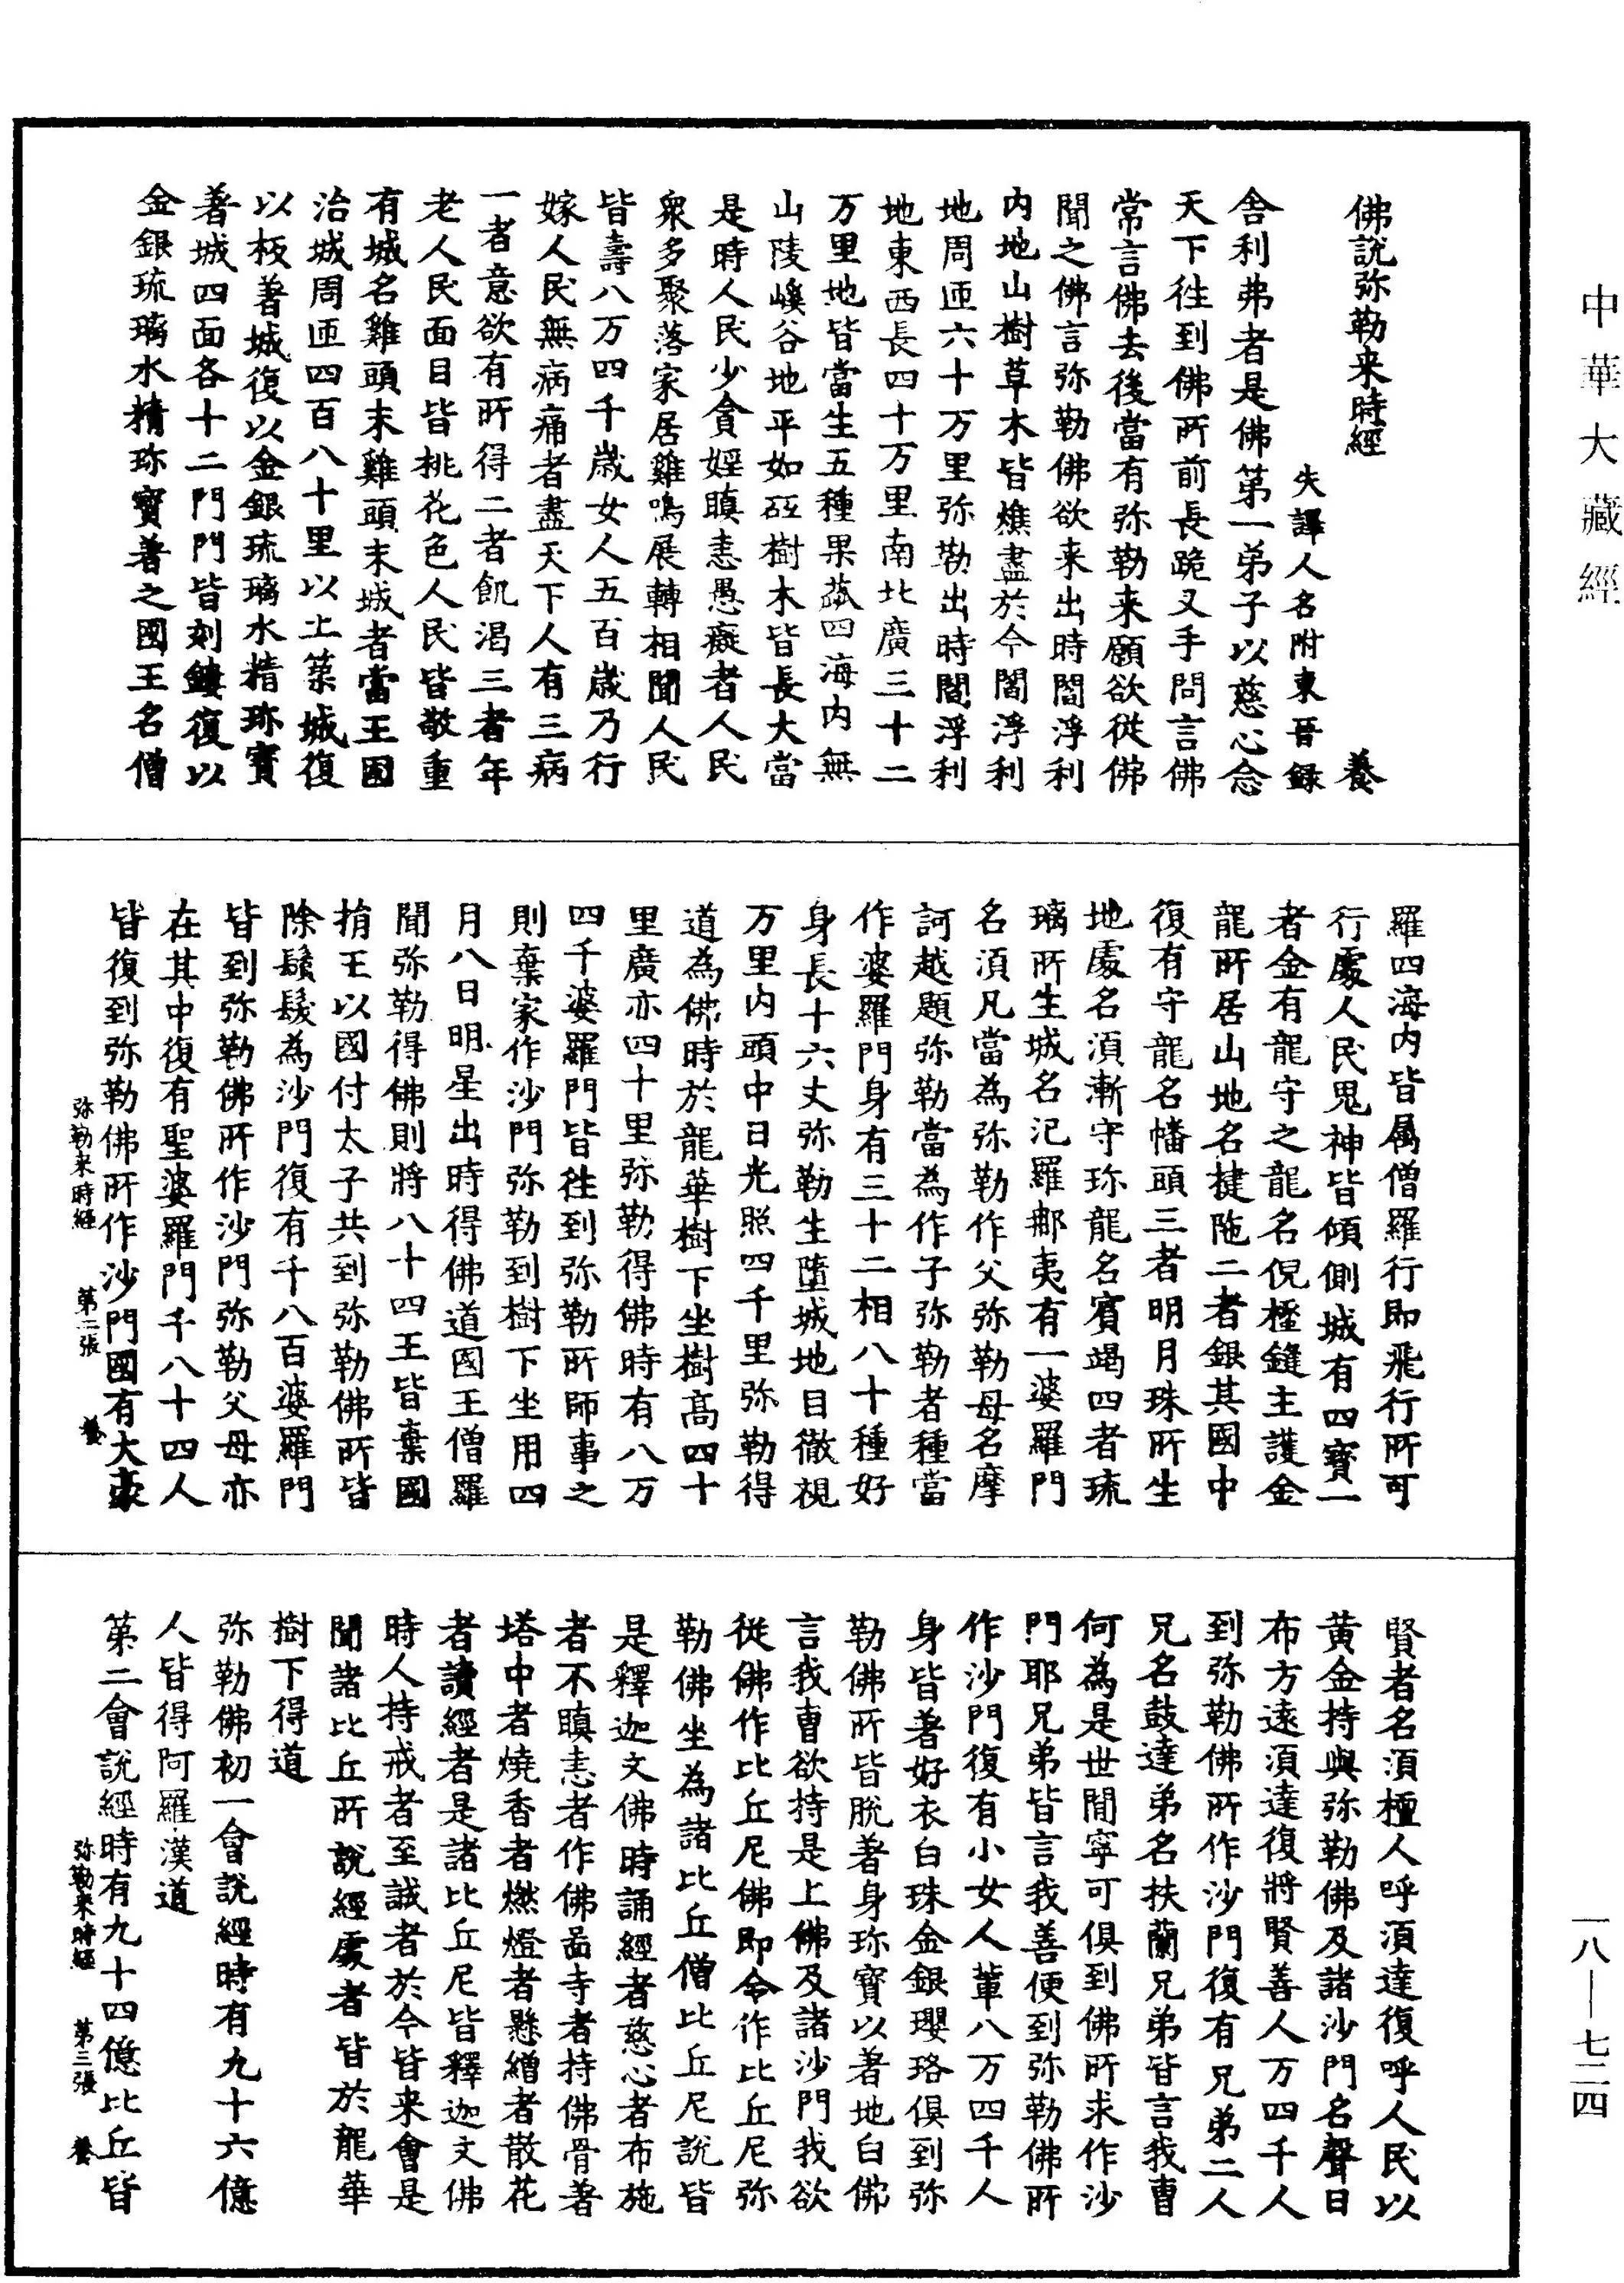 中華大藏經
佛說弥勒来時經 養
失譯人名附東晉録
舎利弗者是佛第一弟子以慈心念
天下徃到佛所前長跪叉手問言佛
常言佛去後當有弥勒来願欲從佛
聞之佛言弥勒佛欲来出時閻浮利
内地山樹草木皆燋盡於今閻浮利
地周迊六十万里弥勒出時閻浮利
地東西長四十万里南北廣三十二
万里地皆當生五種果蓏四海内無
山陵嵠谷地平如砥樹木皆長大當
是時人民少貪婬瞋恚愚癡者人民
衆多聚落家居雞鳴展轉相聞人民
皆壽八万四千歳女人五百歳乃行
嫁人民無病痛者盡天下人有三病
一者意欲有所得二者飢渇三者年
老人民面目皆桃花色人民皆敬重
有城名雞頭末雞頭末城者當王國
治城周迊四百八十里以土築城復
以板著城復以金銀琉璃水精珎寶
著城四面各十二門門皆刻鏤復以
金銀琉璃水精珎寶著之國王名僧
羅四海内皆属僧羅行即飛行所可
行處人民鬼神皆傾側城有四寶一
者金有龍守之龍名倪㯢鋒主護金
龍所居山地名揵陁二者銀其國中
復有守龍名幡頭三者明月珠所生
地處名湏漸守珎龍名賔竭四者琉
璃所生城名氾羅郍夷有一婆羅門
名湏凡當為弥勒作父弥勒母名摩
訶越題弥勒當為作子弥勒者種當
作婆羅門身有三十二相八十種好
身長十六丈弥勒生墮城地目徹視
万里内頭中日光照四千里弥勒得
道為佛時於龍華樹下坐樹髙四十
里廣亦四十里弥勒得佛時有八万
四千婆羅門皆徃到弥勒所師事之
則棄家作沙門弥勒到樹下坐用四
月八日明星出時得佛道國王僧羅
聞弥勒得佛則將八十四王皆棄國
捐王以國付太子共到弥勒佛所皆
除鬚髮為沙門復有千八百婆羅門
皆到弥勒佛所作沙門弥勒父母亦
在其中復有聖婆羅門千八十四人
皆復到弥勒佛所作沙門國有大豪
弥勒来時經 第二張 養
賢者名湏檀人呼湏達復呼人民以
黄金持與弥勒佛及諸沙門名聲日
布方遠湏達復將賢善人万四千人
到弥勒佛所作沙門復有兄弟二人
兄名鼓達弟名扶蘭兄弟皆言我曹
何為是世間寧可俱到佛所求作沙
門耶兄弟皆言我善便到弥勒佛所
作沙門復有小女人軰八万四千人
身皆著好衣白珠金銀瓔珞俱到弥
勒佛所皆脫著身珎寶以著地白佛
言我曹欲持是上佛及諸沙門我欲
從佛作比丘尼佛即令作比丘尼弥
勒佛坐為諸比丘僧比丘尼說皆
是釋迦文佛時誦經者慈心者布施
者不瞋恚者作佛啚寺者持佛骨著
塔中者燒香者燃燈者懸繒者散花
者讀經者是諸比丘尼皆釋迦文佛
時人持戒者至誠者於今皆来會是
聞諸比丘所說經處者皆於龍華
樹下得道
弥勒佛初一會說經時有九十六億
人皆得阿羅漢道
第二會說經時有九十四億比丘皆
弥勒来時經 第三張 養
一八—七二四